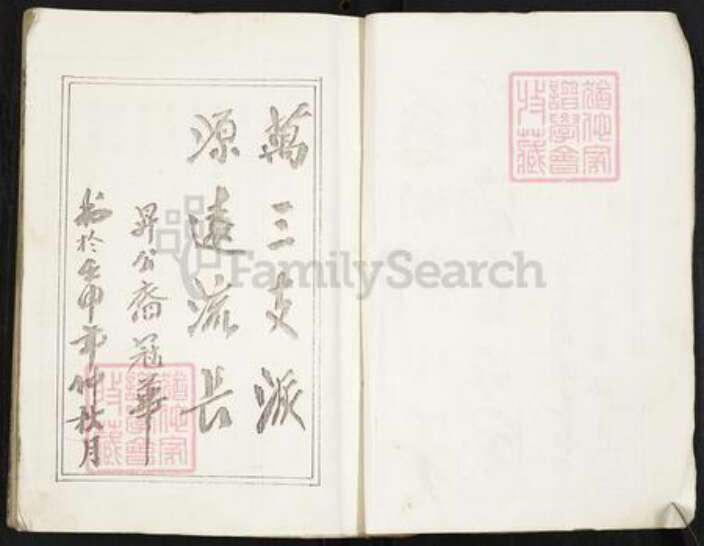 萬三支派
源遠流長
昇公裔冠華
於壬申年仲秋月
猶他家
譜學會
特藏
猶他家
譜學會
特藏
FamilySearch